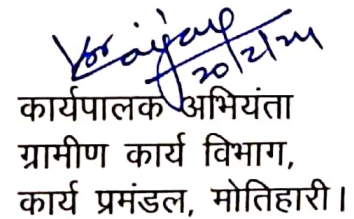 20/2/24
कार्यपालक अभियंता
ग्रामीण कार्य विभाग,
कार्य प्रमंडल, मोतिहारी।